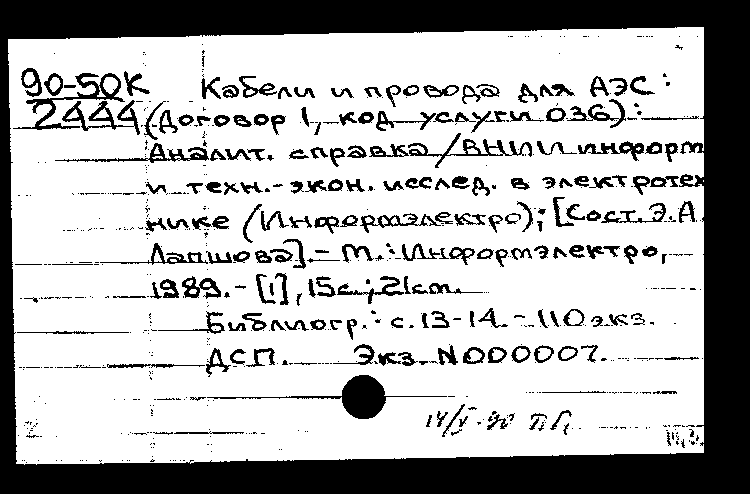 90-50К Кабели и провода для АЭС:
2444 (Договор 1, код услуги 036):
Аналит. справка / ВНИИ информ.
и техн.-экон. исслед. в электротех
нике (Информэлектро); [Сост. Э.А.
Лапшова]. - М.: Информэлектро,
1989. - [1], 15с.; 21см.
Библиогр.: с. 13-14. - 110 экз.
ДСП. Экз. N000007.
14/V-90 ПГ,